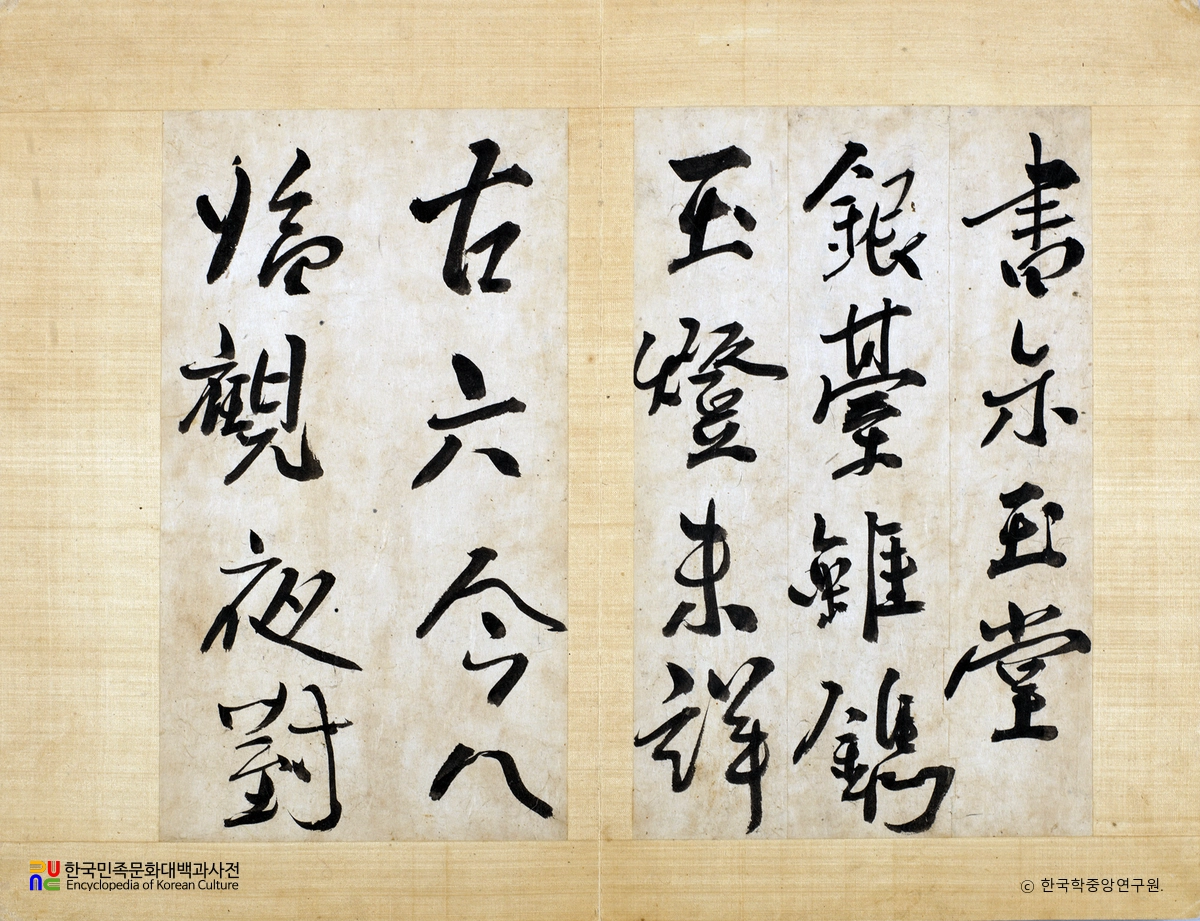 書示玉堂
銀臺雖鐫
玉燈未詳
古六今八
恰觀夜對
한국민족문화대백과사전
Encyclopedia of Korean Culture
ⓒ 한국학중앙연구원.